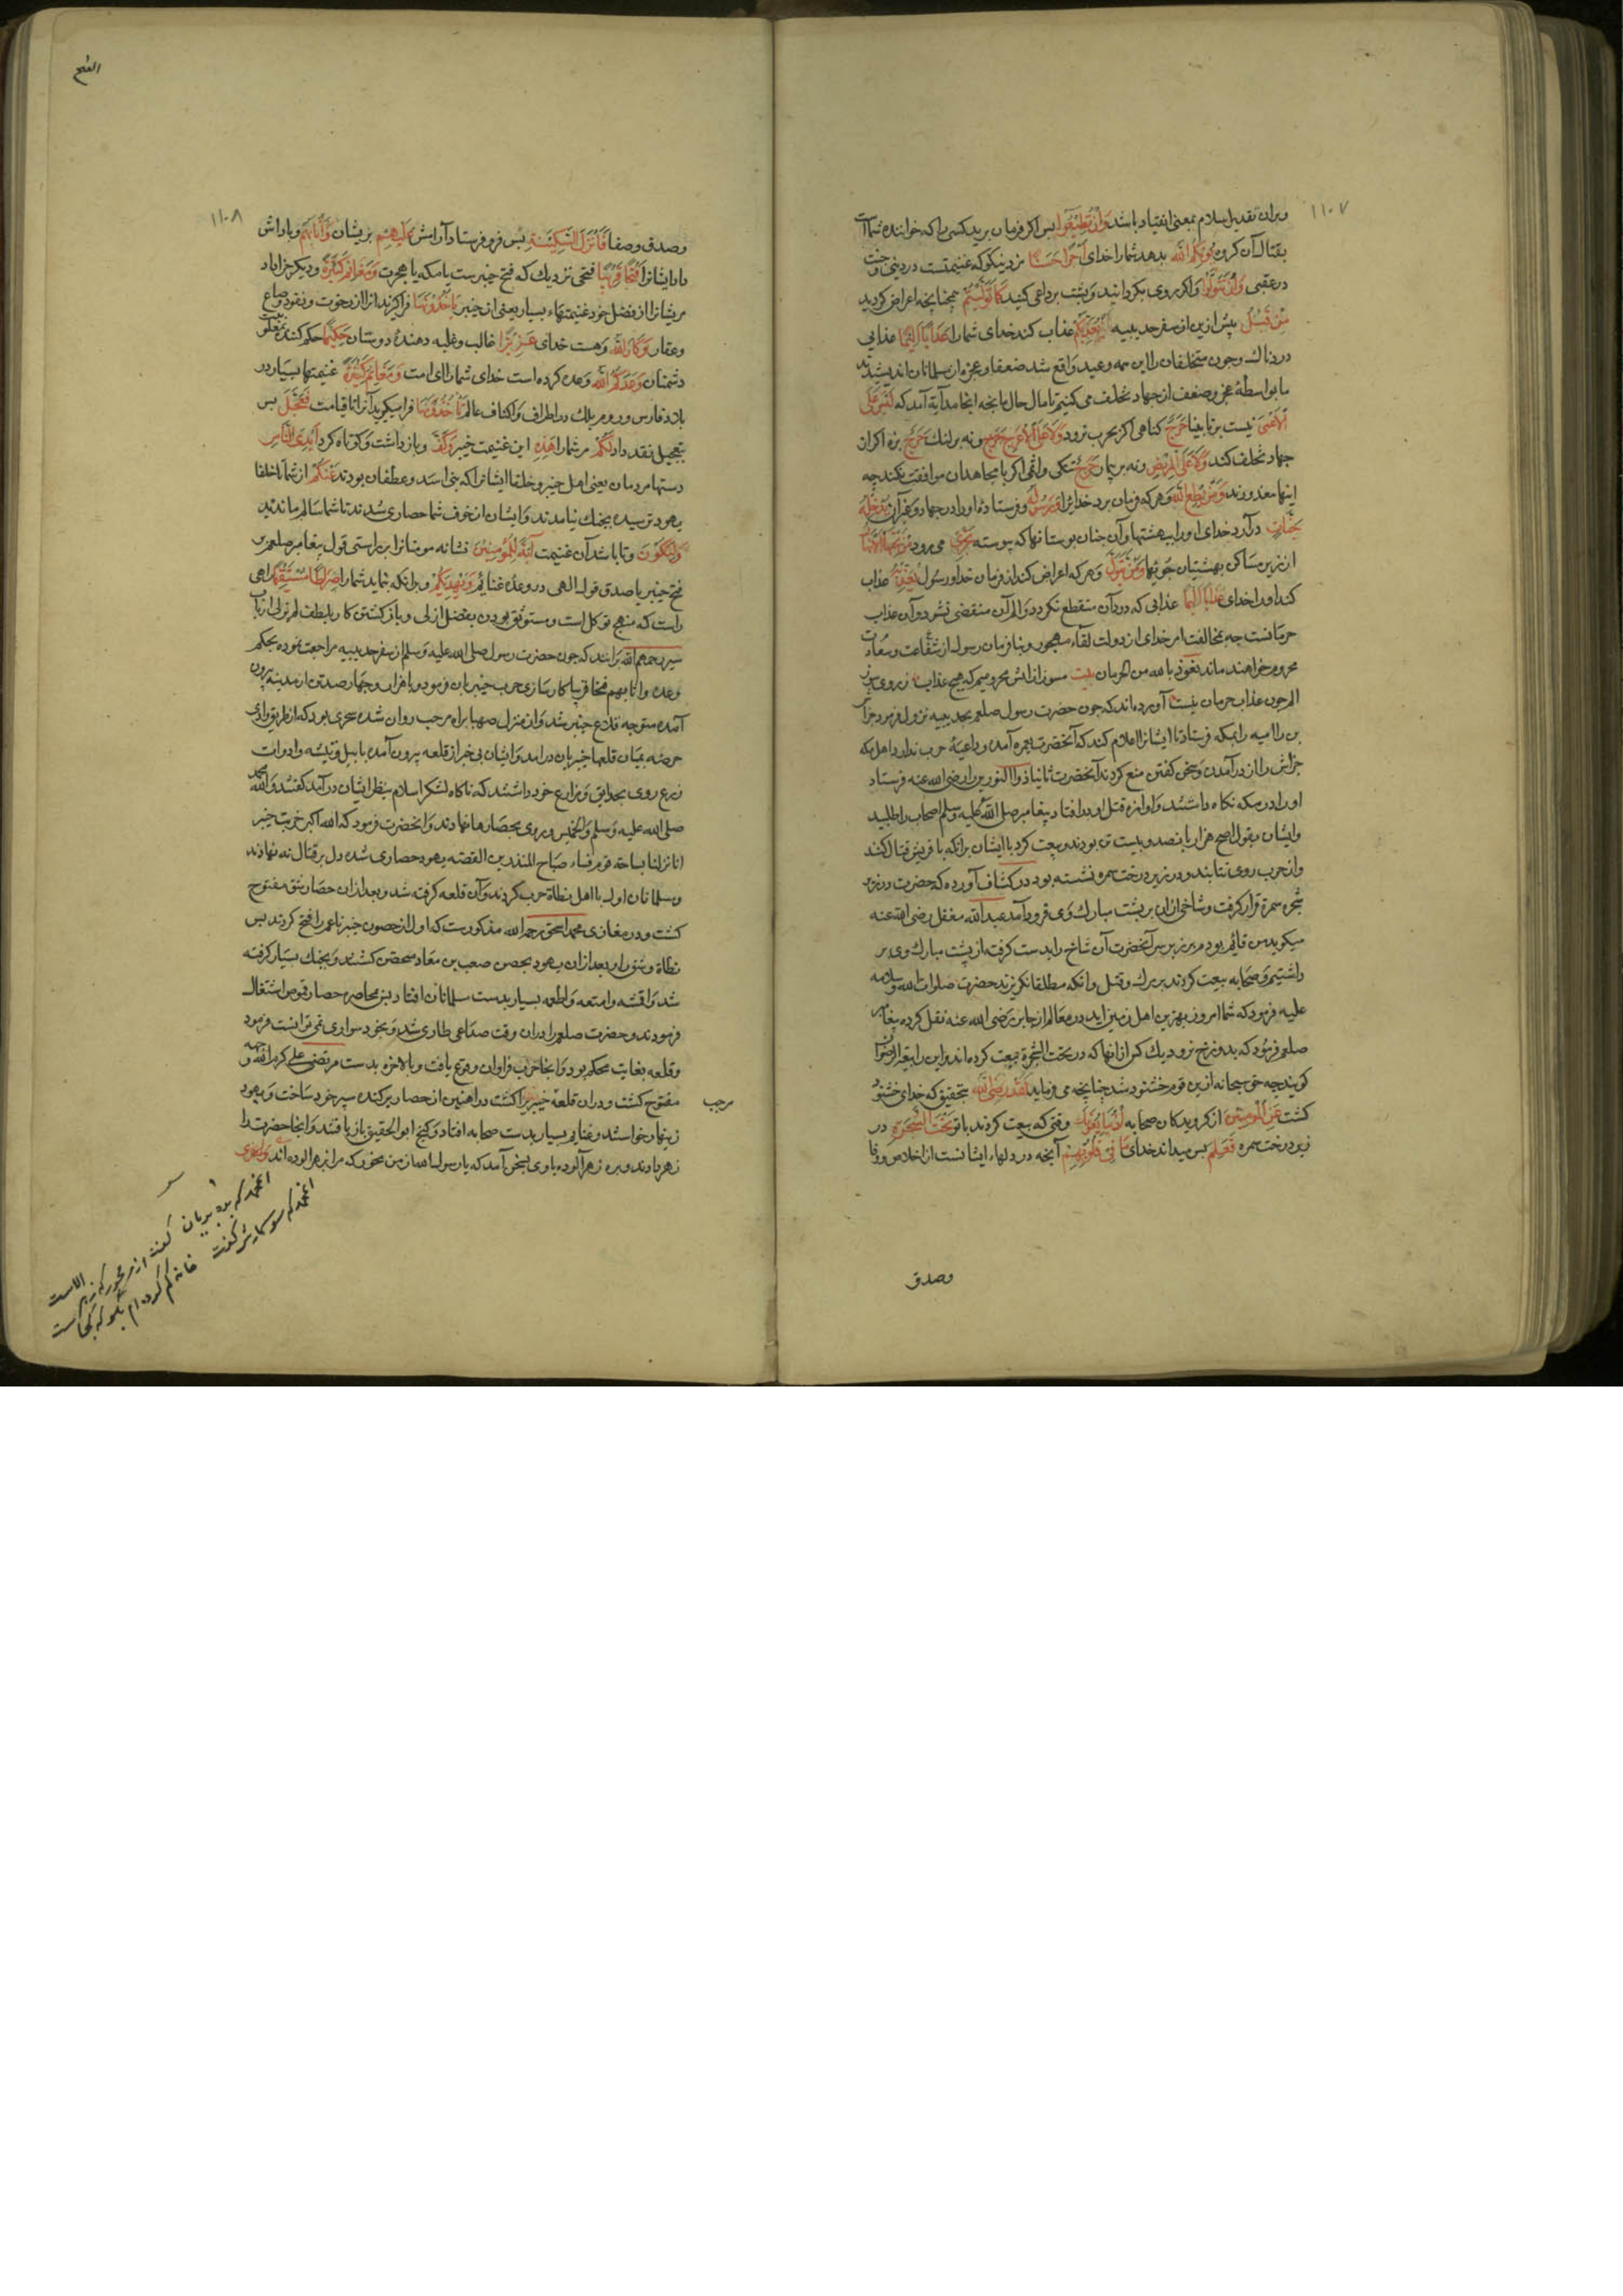 ۱۱۰۷
وبران تقدیر اسلام بمعنی انقیاد باشد وَاِنْ تُطِیْعُوا پس اکر فرمان برید کسی را که خواننده شماست
بقتال آن کروه یُؤْتِکُمُ اللّٰه بدهد شمارا خدای اَجْرًا حَسَنًا مزد نیکو که غنیمتست در دنیی و جنت
در عقبی وَاِنْ تَتَوَلَّوْا واکر روی بکردانید و پشت برداعی کنید کَمَا تَوَلَّیْتُمْ همچنانچه اعراض کردید
مِنْ قَبْلُ پیش ازین از سفر حدیبیه یُعَذِّبْکُمْ عذاب کند خدای شمارا عَذَابًا اَلِیْمًا عذابی
دردناک و چون متخلفان را این همه وعید واقع شد ضعفا و عجزه از مسلمانان اندیشیدند
ما بواسطهٔ عجز و ضعف از جهاد تخلف می کنیم تا مال حال ما بچه انجامد آیة آمد که لَیْسَ عَلَی
الْاَعْمٰی نیست بر نابینا حَرَجٌ کناهی اکر بحرب نرود وَلَا عَلَی الْاَعْرَجِ حَرَجٌ ونه بر لنک حَرَجٌ بزه اکر ازان
جهاد تخلف کند وَلَا عَلَی الْمَرِیْضِ ونه بر بیمار حَرَجٌ تنکی واثمی اکر با مجاهدان موافقت نکند چه
اینها معذورند وَمَنْ یُطِعِ اللّٰه وهر که فرمان برد خدایرا وَرَسُوْلَه وفرستادهٔ اورا در جهاد وغیر آن یُدْخِلْهُ
جَنّٰتٍ درآرد خدای اورا ببهشتها و آن جنان بوستانها که پیوسته تَجْرِیْ می رود مِنْ تَحْتِهَا الْاَنْهٰرُ
از زیر مساکن بهشتیان جویها وَمَنْ یَتَوَلَّ وهر که اعراض کند از فرمان خدا و رسول یُعَذِّبْهُ عذاب
کند اورا خدای عَذَابًا اَلِیْمًا عذابی که درد آن منقطع نکردد و الم آن منقضی نشود و آن عذاب
حرمانست چه بمخالفت امر خدای از دولت لقاء مهجور و بنافرمان رسول از شفاعت و سعادت
محروم خواهند ماند نعوذ بالله من الحرمان بیت مسوز از اتش محرومیم که هیچ عذاب ز روی سوز
الم چون عذاب حرمان نیست آورده اند که چون حضرت رسول صلعم بحدیبیه نزول فرمود خراش
بن را امیه را بمکه فرستاد تا ایشانرا اعلام کند که آنحضرت بعمره آمده و داعیهٔ حرب ندارد اهل مکه
خراش را از درآمدن و سخن کفتن منع کردند آنحضرت ثانیا ذوالنورین را رضی الله عنه فرستاد
اورا در مکه نکاه داشتند و اوازه قتل او در افتاد پیغامبر صلی الله علیه وسلم اصحاب را طلبید
وایشان بقول اصح هزار و پانصد و بیست تن بودند و بیعت کرد با ایشان برانکه با قریش قتال کنند
واز حرب روی نتابند و در زیر درخت سمره نشسته بود در کشاف آورده که حضرت در زیر
شجره سمرة قرار کرفت و شاخی ازان بر پشت مبارک وی فرود آمد عبد الله مغفل رضی الله عنه
میکوید من قائم بودم بر زبر سر آنحضرت آن شاخ را بدست کرفته از پشت مبارک وی بر
داشتیم و صحابه بیعت کردند بر برک و قتل و انکه مطلقا نکریزند حضرت صلوات الله و سلامه
علیه فرمود که شما امروز بهترین اهل زمین اید در معالم از جابر رضی الله عنه نقل کرده پیغامبر
صلعم فرمود که بدوزخ نرود یک کس ازانها که در تحت الشجرة بیعت کرده اند و این را بیعة الرضوان
کویند چه حق سبحانه ازین قوم خشنود شد چنانچه می فرماید لَقَدْ رَضِیَ اللّٰه بتحقیق که خدای خشنود
کشت عَنِ الْمُؤْمِنِیْنَ از کرویدکان صحابه اِذْ یُبَایِعُوْنَكَ وقتی که بیعت کردند با تو تَحْتَ الشَّجَرَةِ در
زیر درخت سمره فَعَلِمَ پس میداند خدای مَا فِیْ قُلُوْبِهِمْ آنچه در دلهاء ایشانست از اخلاص و وفا
وصدق
الفتح
۱۱۰۸
وصدق وصفا فَاَنْزَلَ السَّکِیْنَةَ پس فرو فرستاد آرامش عَلَیْهِمْ بریشان وَاَثَابَهُمْ و پاداش
داد ایشانرا فَتْحًا قَرِیْبًا فتحی نزدیک که فتح خیبرست یا مکه یا هجرت وَمَغَانِمَ کَثِیْرَةً و دیکر جزا داد
مریشانرا از فضل خود غنیمتهاء بسیار یعنی از خیبر یَاْخُذُوْنَهَا فراکیرند انرا از رخوت و نقود و ضیاع
وعقار وَکَانَ اللّٰه وهست خدای عَزِیْزًا غالب و غلبه دهندهٔ دوستان حَکِیْمًا حکم کننده بمغلوبیت
دشمنان وَعَدَکُمُ اللّٰه وعده کرده است خدای شمارا ای امت وَمَغَانِمَ کَثِیْرَةً غنیمتها بسیار در
بلاد فارس و روم بلک در اطراف و اکناف عالم تَاْخُذُوْنَهَا فرا میکیرید آنرا تا قیامت فَعَجَّلَ پس
بتعجیل نقد داد لَکُمْ مر شمارا هٰذِه این غنیمت خیبر وَکَفَّ و بازداشت و کوتاه کرد اَیْدِیَ النَّاسِ
دستها مردمان یعنی اهل خیبر و خلفا ایشانرا که بنی اسد و غطفان بودند عَنْکُمْ از شما تا خلفا
یهود ترسیده بجنک نیامدند و ایشان از خوف شما حصاری شدند تا شما سالم ماندید
وَلِتَکُوْنَ و تا باشد آن غنیمت اٰیَةً لِلْمُؤْمِنِیْنَ نشانه مومنانرا بر راستی قول پیغامبر صلعم در
فتح خیبر یا صدق قول الهی در وعدهٔ غنائم وَیَهْدِیَکُمْ و برانکه بنماید شمارا صِرَاطًا مُسْتَقِیْمًا راهی
راست که منهج توکل است و مستوثق بودن بفضل ازلی و باز کشتن کار بلطف لم یزلی ارباب
سیر رحمهم الله برانند که چون حضرت رسول صلی الله علیه وسلم از سفر حدیبیه مراجعت نموده بحکم
وعده واثابهم فتحا قریبا کارسازی حرب خیبریان فرمود و با هزار و چهارصد تن از مدینه بیرون
آمده متوجه قلاع خیبر شد و از منزل صهبا براه مرحب روان شده سحری بود که از طریق وادی
خرضه بمیان قلعها خیبریان درامد و ایشان بی خبر از قلعه بیرون آمده با بیل و تیشه و ادوات
زرع روی بحدایق و مزارع خود داشتند که ناکاه لشکر اسلام بنظر ایشان درآمد کفتند والله محمد
صلی الله علیه وسلم والخمیس و روی بحصارها نهادند و انحضرت فرمود که الله اکبر خربت خیبر
انا نزلنا بساحة قوم فساء صباح المنذرین القصه یهود حصاری شده دل بر قتال نه نهادند
ومسلمانان اول با اهل نطاة حرب کردند و آن قلعه کرفته شد و بعد ازان حصار شق مفتوح
کشت و در مغازی محمد اسحق رحمه الله مذکورست که اول از حصون خیبر ناعم را فتح کردند پس
نطاة و شق را و بعد ازان یهود بحصن صعب بن معاد متحصن کشتند و بجنک بسیار کرفته
شد و اقشه و امتعه و اطعمه بسیار بدست مسلمانان افتاد پس بمحاصره حصار قموص اشتغال
فرمودند و حضرت صلعم را دران وقت صداعی طاری شد و بخود سواری نمی توانست فرمود
و قلعه بغایت محکم بود و انجا حرب فراوان وقوع یافت و بالاخره بدست مرتضی علی کرم الله وجهه
مفتوح کشت و دران قلعهٔ خیبر را کشت در اهنین از حصار برکنده سپر خود ساخت و یهود
مرحب
زینهار خواستند و غنایم بسیار بدست صحابه افتاد و کنج ابو الحقیق باز یافتند و انجا حضرت را
زهر دادند و بره زهرآلوده با وی بسخن آمد که یارسول الله از من مخور که مرا بزهر الوده اند
انمحمد که بره بریان کفت از من مخور که زهر الاست
انمحمد که سوسمارش کفت خانه کم کرده ام بکو که کجاست